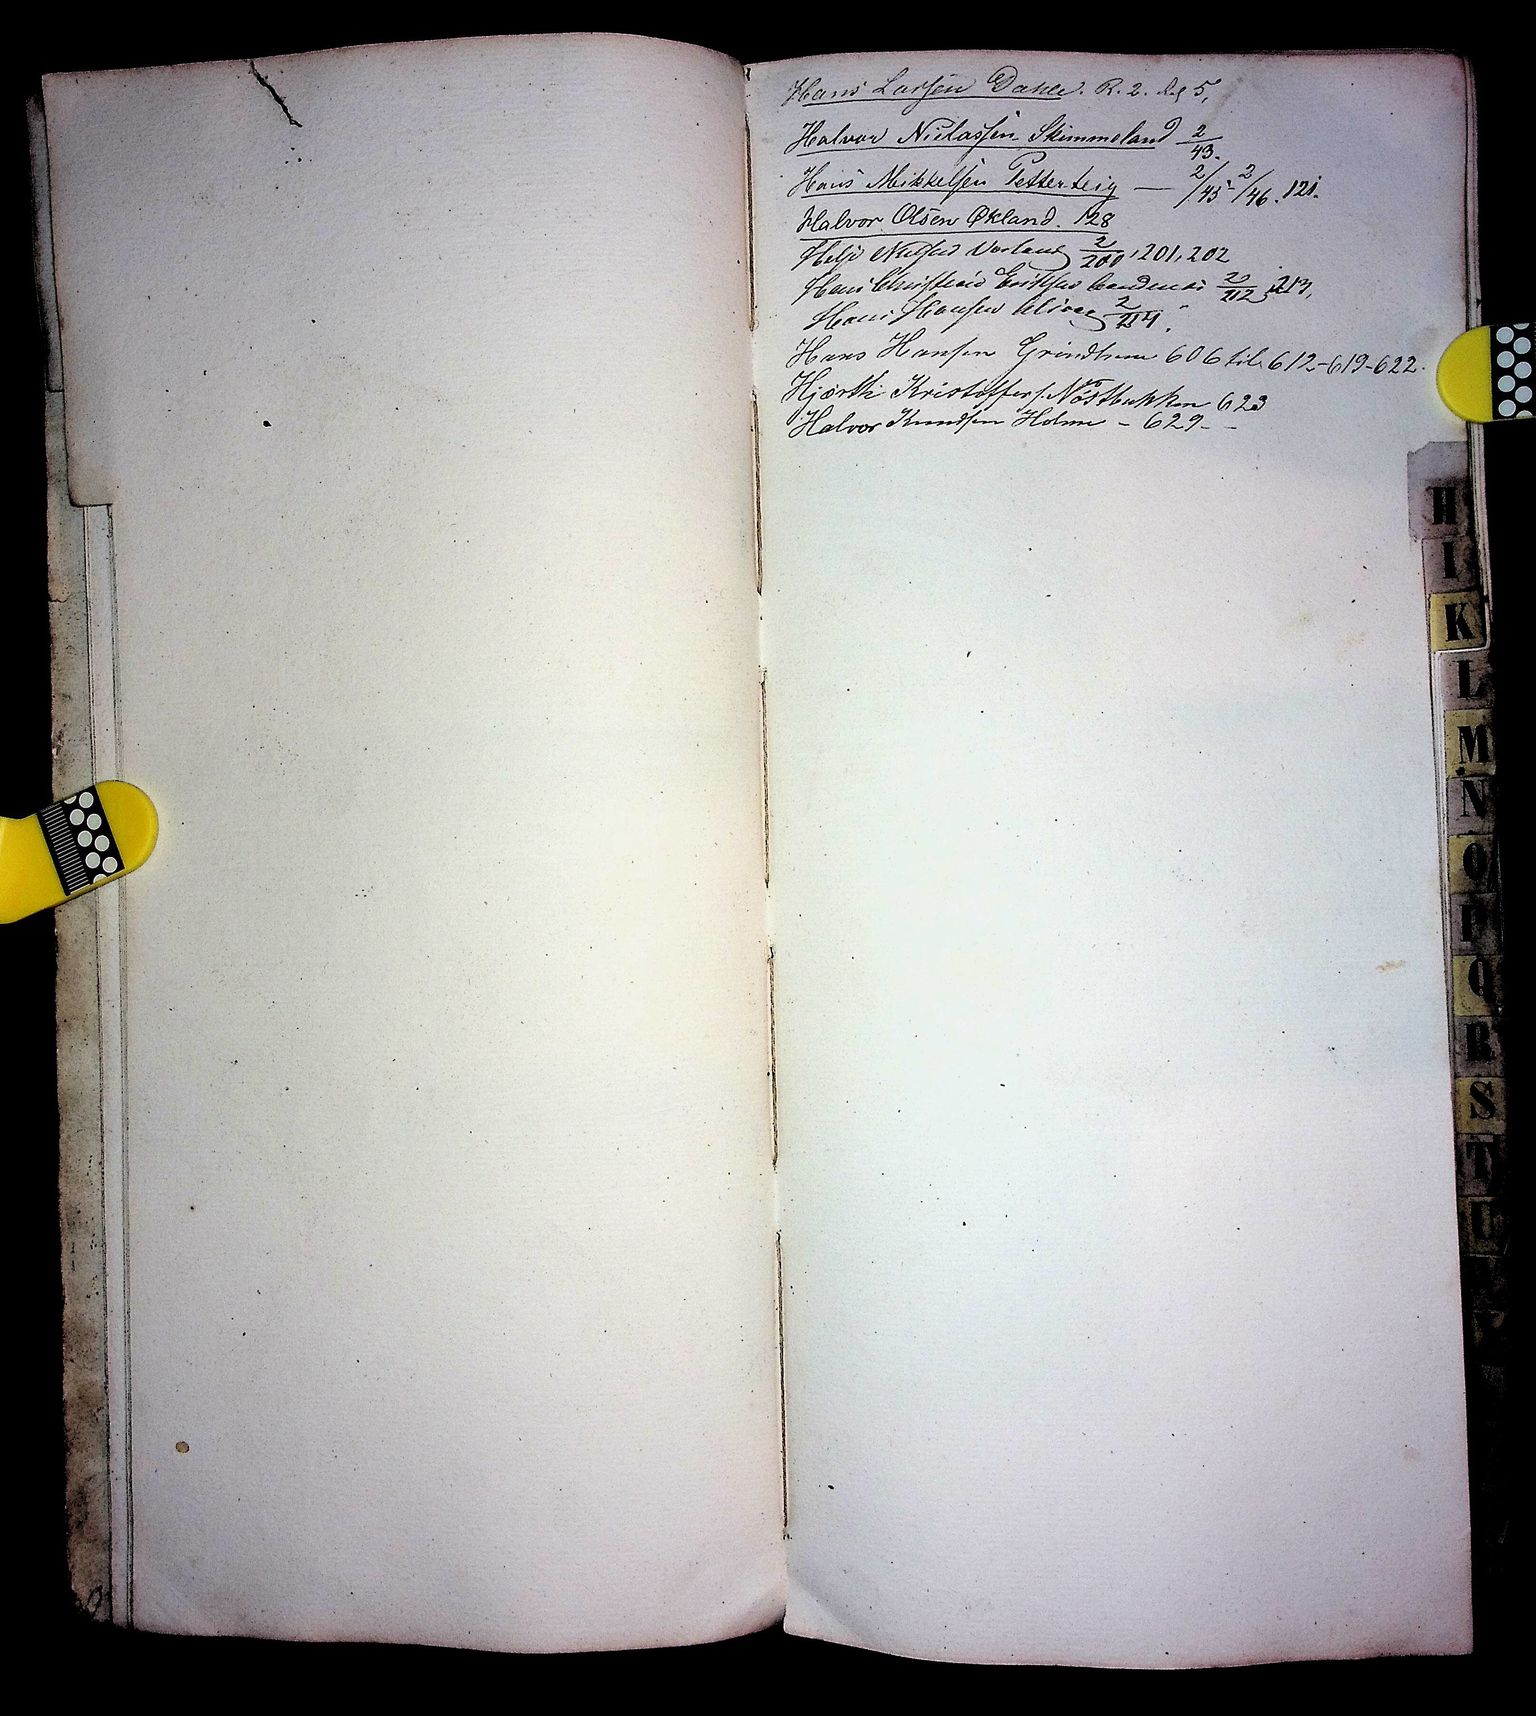 Hans Larsen Dahle. R. 2. 5,
Halvor Niclassen Skimmeland 2/43.
Hans Mikkelsen Petterteig — 2/45 - 2/46. 121.
Halvor Olsen Økland. 128
Helje Nielsen 2/200, 201, 202
Hans 2/212, 213,
Hans Hansen 2/214.
Hans Hansen Grindheim 606 til 612-619-622.
Kristoffers. Nöstbakken 623
Halvor Knudsen Holme - 629 -
H
I
K
L
M
N
O
P
Q
R
S
T
U